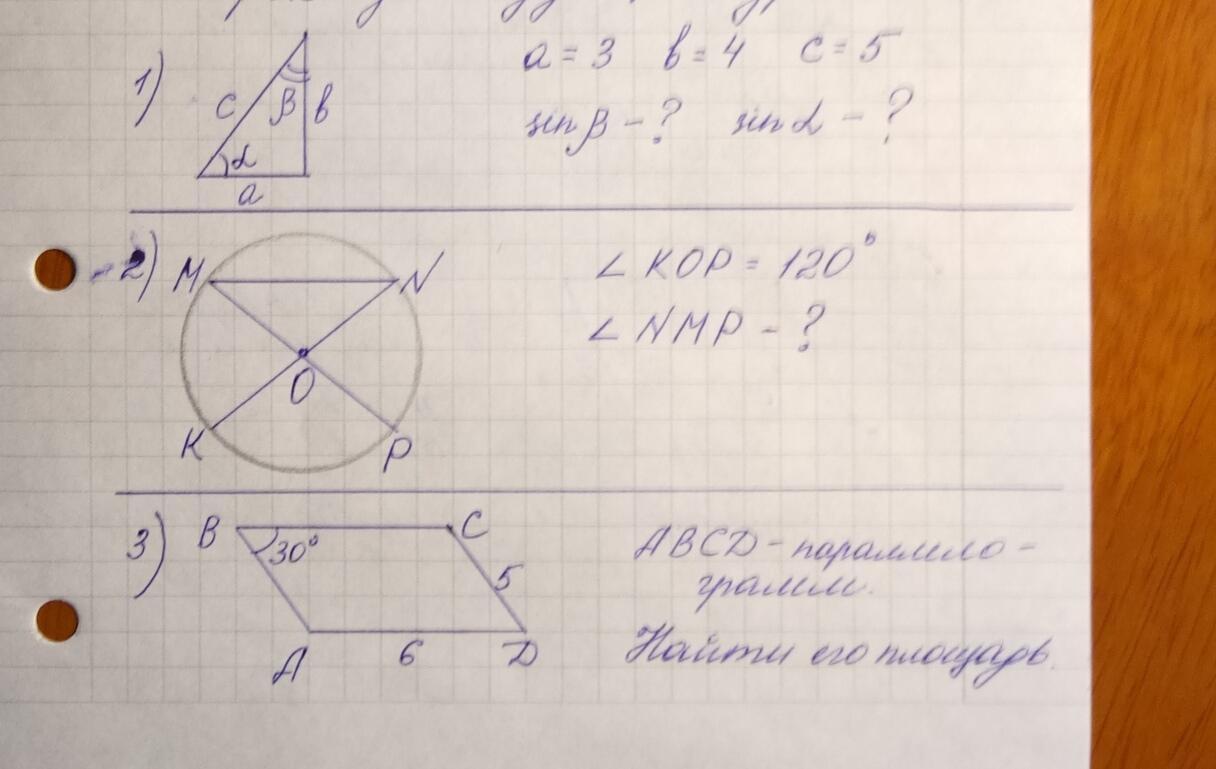 1) c β b α a
a = 3 b = 4 c = 5
sin β - ? sin α - ?
2) M N O K P
∠ KOP = 120°
∠ NMP - ?
3) B C 30° 5 A 6 D
ABCD - параллело-
грамм.
Найти его площадь.